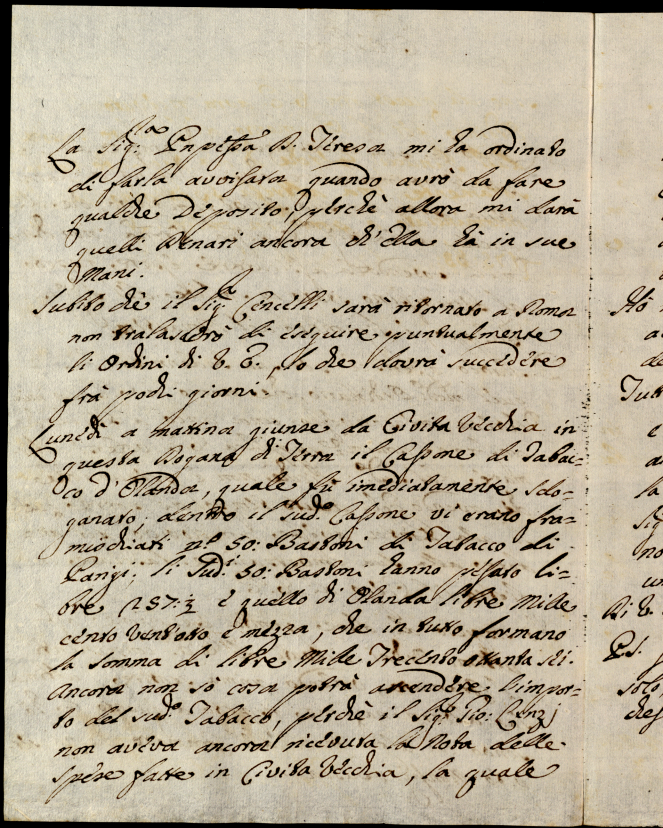 La Sig:ra Pnp̃essa D. Teresa mi ha ordinato
di farla avvisara quando avrò da fare
qualche Deposito, perchè allora mi darà
quelli Denari ancora ch'ella hà in sue
Mani.
Subito che il Sig.r Cencelli sarà ritornato a Roma
non tralascerò di eseguire puntualmente
li Ordini di V. E., lo che dovrà succedere
frà pochi giorni
Lunedì a matina giunse da Civita Vecchia in
questa Dogana di Terra il Cassone di Tabac=
co d'Olanda, quale fù imediatamente sdo=
ganato, dentro il sud.o Cassone vi erano fra=
mischiati n.o 50: Bastoni di Tabacco di
Parigi; li sud.i 50: Bastoni hanno pesato li=
bre 257:½ e quello di Olanda libre Mille
cento ventotto e mezza, che in tutto formano
la somma di libre Mille Trecento ottanta sei.
Ancora non sò cosa potrà ascendere l'impor=
to del sud.o Tabacco, perchè il Sig.r Gio: Lenzj
non aveva ancora ricevuta la Nota delle
spese fatte in Civita Vecchia, la quale
Hò
Tutt
e
la
Sig
no
un
Di V.
P.S.
solo
ches